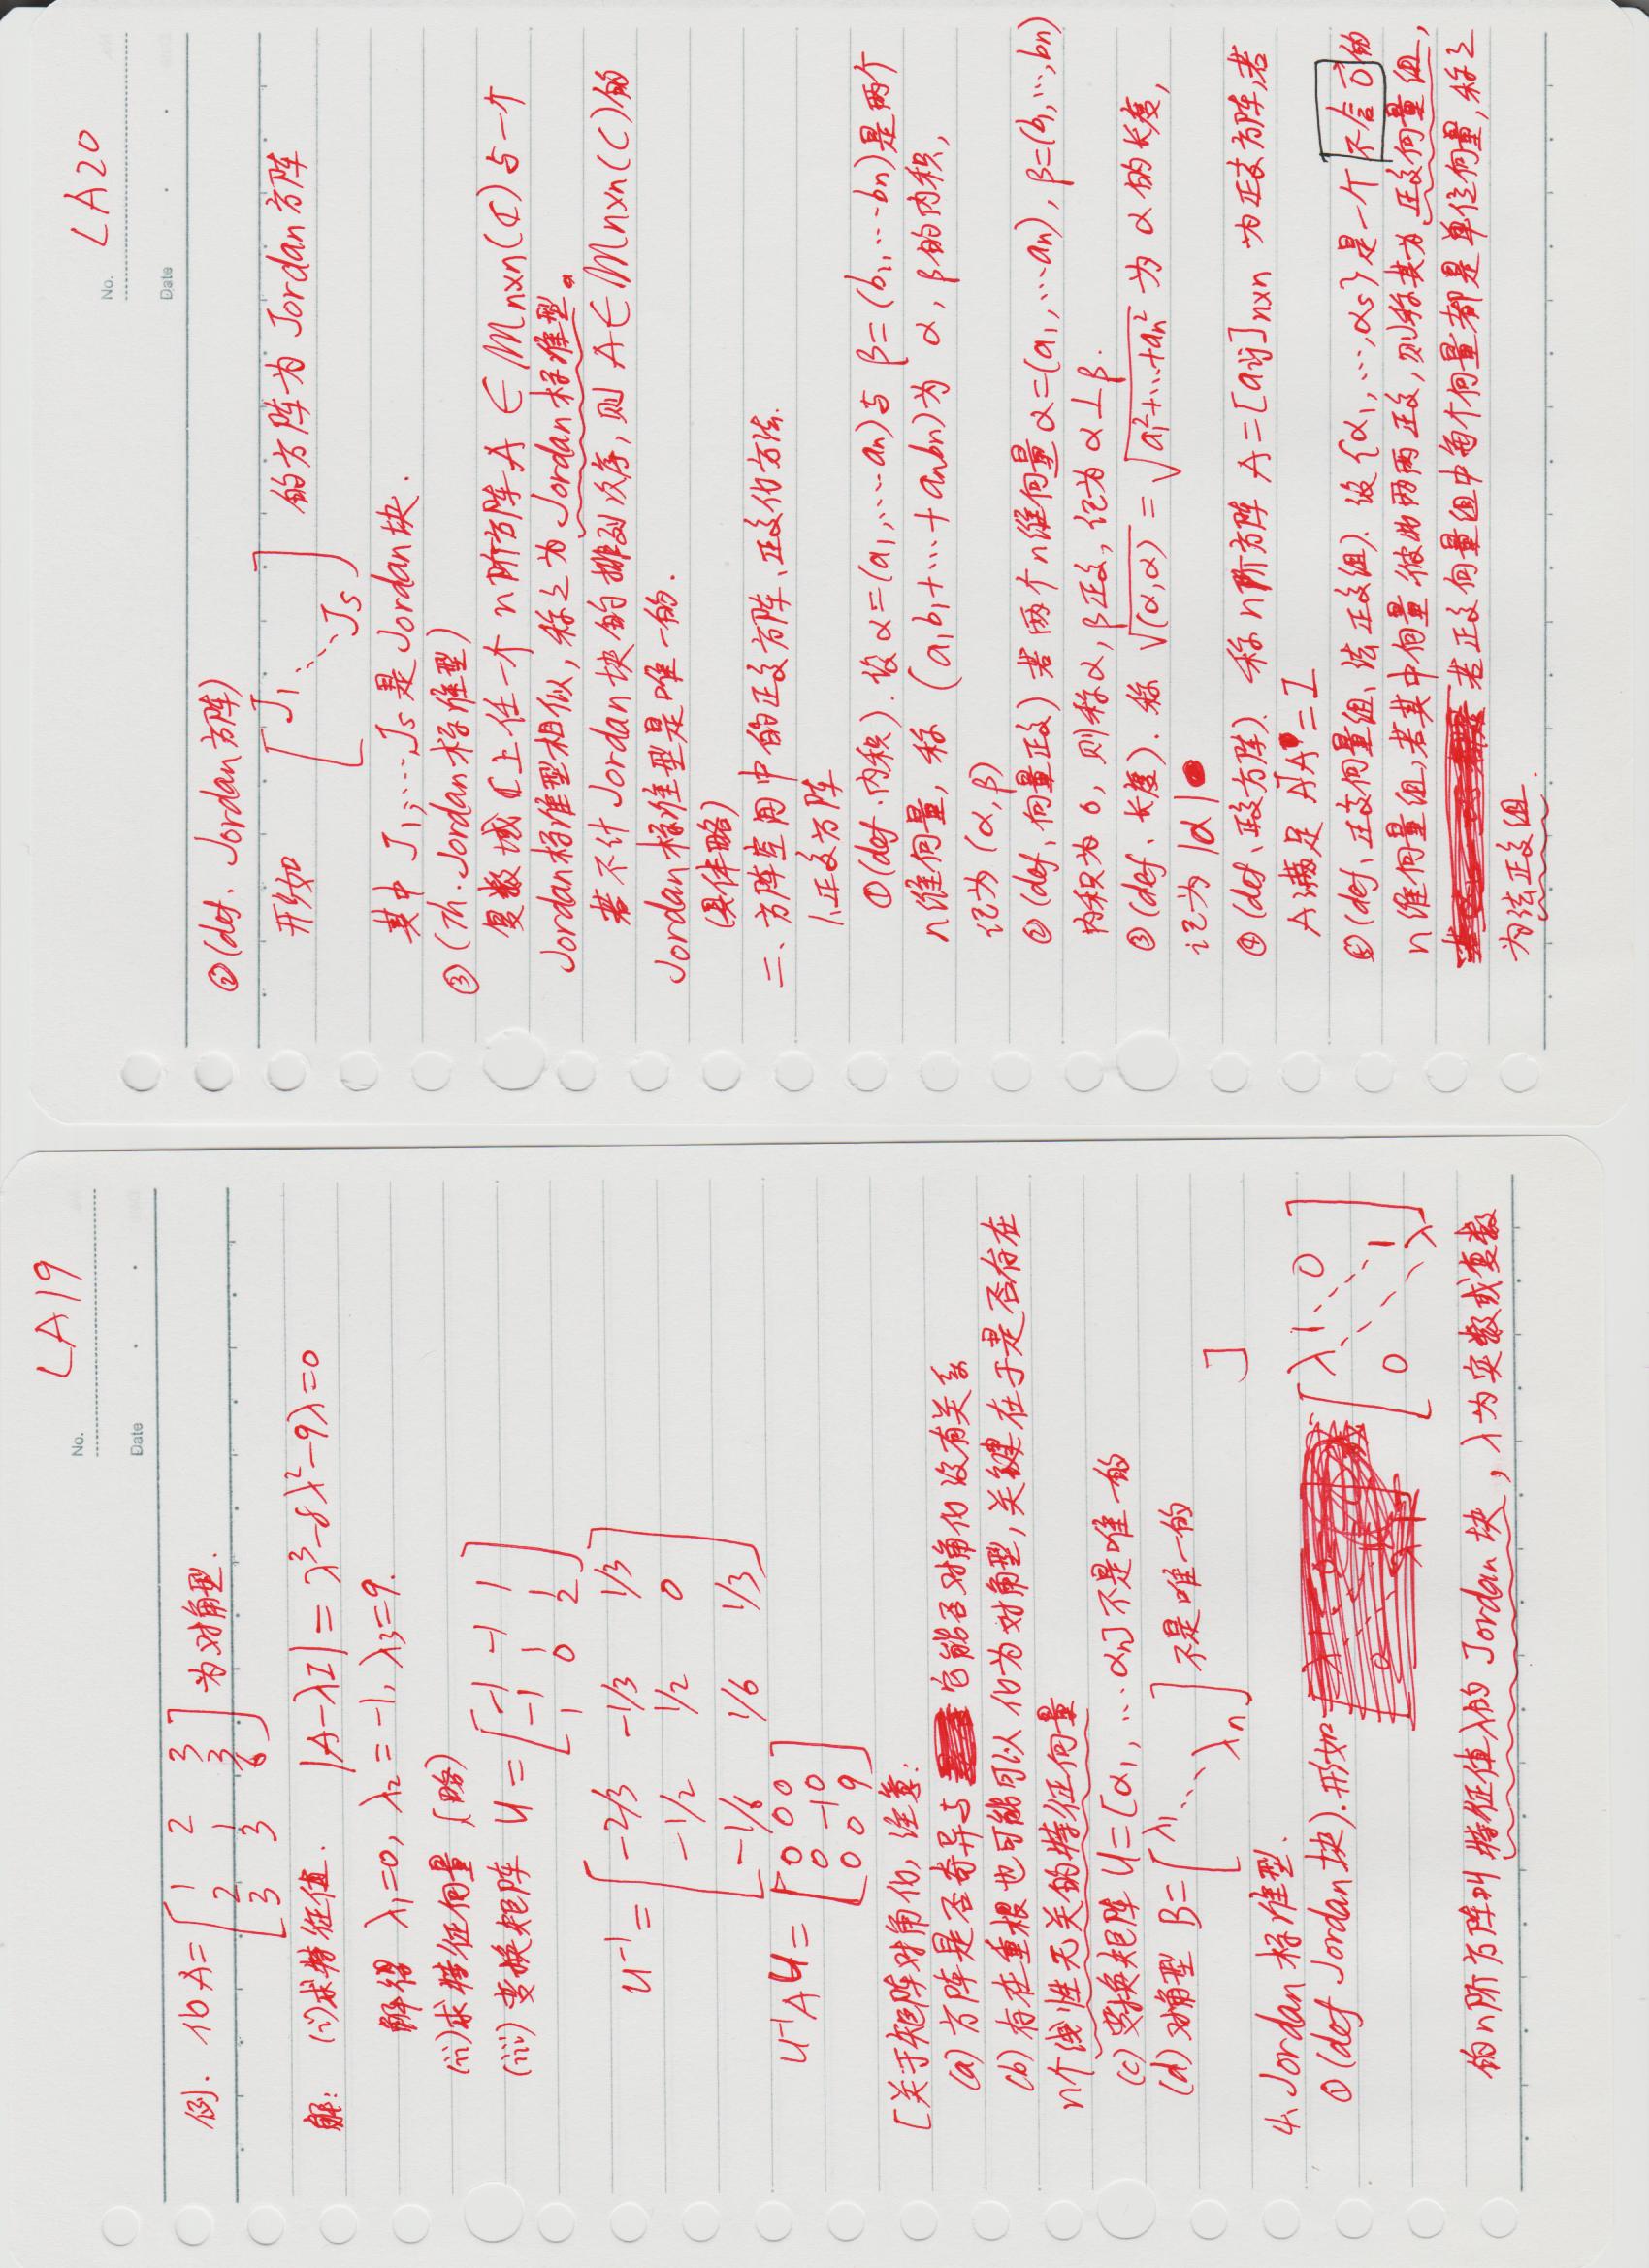 No. LA19
Date
例. 化 A = [1 2 3; 2 1 3; 3 3 6] 为对角型.
解: (i) 求特征值. |A-λI| = λ³-8λ²-9λ=0
解得 λ₁=0, λ₂=-1, λ₃=9.
(ii) 求特征向量 (略)
(iii) 变换矩阵 U = [-1 -1 1; -1 1 1; 1 0 2]
U⁻¹ = [-2/3 -1/3 1/3; -1/2 1/2 0; -1/6 1/6 1/3]
U⁻¹AU = [0 0 0; 0 -1 0; 0 0 9]
[关于矩阵对角化, 注意:
(a) 方阵是否奇异与它能否对角化没有关系
(b) 存在重根也可能可以化为对角型, 关键在于是否存在
n个线性无关的特征向量
(c) 变换矩阵 U=[α₁, …αₙ] 不是唯一的
(d) 对角型 B=[λ₁ ⋱ λₙ] 不是唯一的
]
4. Jordan 标准型.
① (def Jordan 块). 形如 [λ 1 0; ⋱ ⋱ 1; 0 λ]
的n阶方阵叫特征值λ的 Jordan 块, λ为实数或复数
No. LA20
Date
② (def. Jordan 方阵)
形如 [J₁ ⋱ Jₛ] 的方阵为 Jordan 方阵
其中 J₁, …, Jₛ 是 Jordan 块.
③ (Th. Jordan 标准型)
复数域 ℂ 上任一个 n 阶方阵 A ∈ Mₙₓₙ(ℂ) 与一个
Jordan 标准型相似, 称之为 Jordan 标准型。
若不计 Jordan 块的排列次序, 则 A∈Mₙₓₙ(C) 的
Jordan 标准型是唯一的.
(具体略)
二、方阵空间中的正交方阵、正交化方法.
1. 正交方阵
① (def. 内积). 设 α=(a₁, …aₙ) 与 β=(b₁, …bₙ) 是两个
n 维向量, 称 (a₁b₁+…+aₙbₙ) 为 α, β 的内积,
记为 (α, β)
② (def. 向量正交) 若两个n维向量 α=(a₁, …aₙ), β=(b₁, …, bₙ)
内积为 0, 则称 α, β 正交, 记为 α⊥β.
③ (def. 长度). 称 √(α,α) = √a₁²+…+aₙ² 为 α 的长度,
记为 |α|
④ (def. 正交方阵). 称 n 阶方阵 A=[aᵢⱼ]ₙₓₙ 为正交方阵, 若
A 满足 AᵀA=I
⑤ (def. 正交向量组、法正交组). 设 {α₁, …, αₛ} 是一个不含 0⃗ 的
n 维向量组, 若其中向量彼此两两正交, 则称其为正交向量组,
若正交向量组中每个向量都是单位向量, 称之
为法正交组.